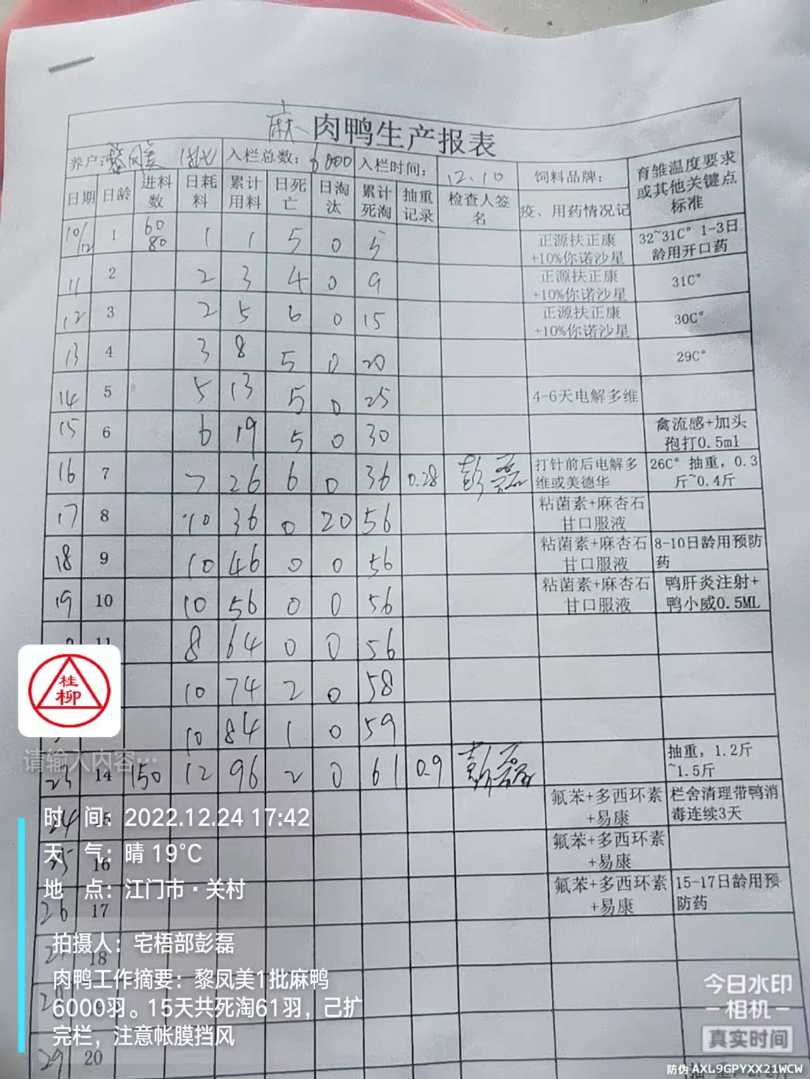 麻 肉鸭生产报表
养户 黎凤美 1批 入栏总数: 6000 入栏时间: 12.10 饲料品牌: 育雏温度要求或其他关键点标准
日期 日龄 进料数 日耗料 累计用料 日死亡 日淘汰 累计死淘 抽重记录 检查人签名 疫、用药情况记
10/12 1 60 80 1 1 5 0 5 正源扶正康+10%你诺沙星 32~31C° 1-3日龄用开口药
11 2 2 3 4 0 9 正源扶正康+10%你诺沙星 31C°
12 3 2 5 6 0 15 正源扶正康+10%你诺沙星 30C°
13 4 3 8 5 0 20 29C°
14 5 5 13 5 0 25 4-6天电解多维
15 6 6 19 5 0 30 禽流感+加头孢打0.5ml
16 7 7 26 6 0 36 0.28 彭磊 打针前后电解多维或美德华 26C° 抽重，0.3斤~0.4斤
17 8 10 36 0 20 56 粘菌素+麻杏石甘口服液
18 9 10 46 0 0 56 粘菌素+麻杏石甘口服液 8-10日龄用预防药
19 10 10 56 0 0 56 粘菌素+麻杏石甘口服液 鸭肝炎注射+鸭小威0.5ML
11 8 64 0 0 56
10 74 2 0 58
10 84 1 0 59
23 14 150 12 96 2 0 61 0.9 彭磊 抽重，1.2斤~1.5斤
24 15 氟苯+多西环素+易康 栏舍清理带鸭消毒连续3天
25 16 氟苯+多西环素+易康
26 17 氟苯+多西环素+易康 15-17日龄用预防药
18
29 20
桂柳
请输入内容…
时 间：2022.12.24 17:42
天 气：晴 19℃
地 点：江门市·关村
拍摄人：宅梧部彭磊
肉鸭工作摘要：黎凤美1批麻鸭
6000羽。15天共死淘61羽，己扩
完栏，注意帐膜挡风
今日水印
相机
真实时间
防伪 AXL9GPYXX21WCW